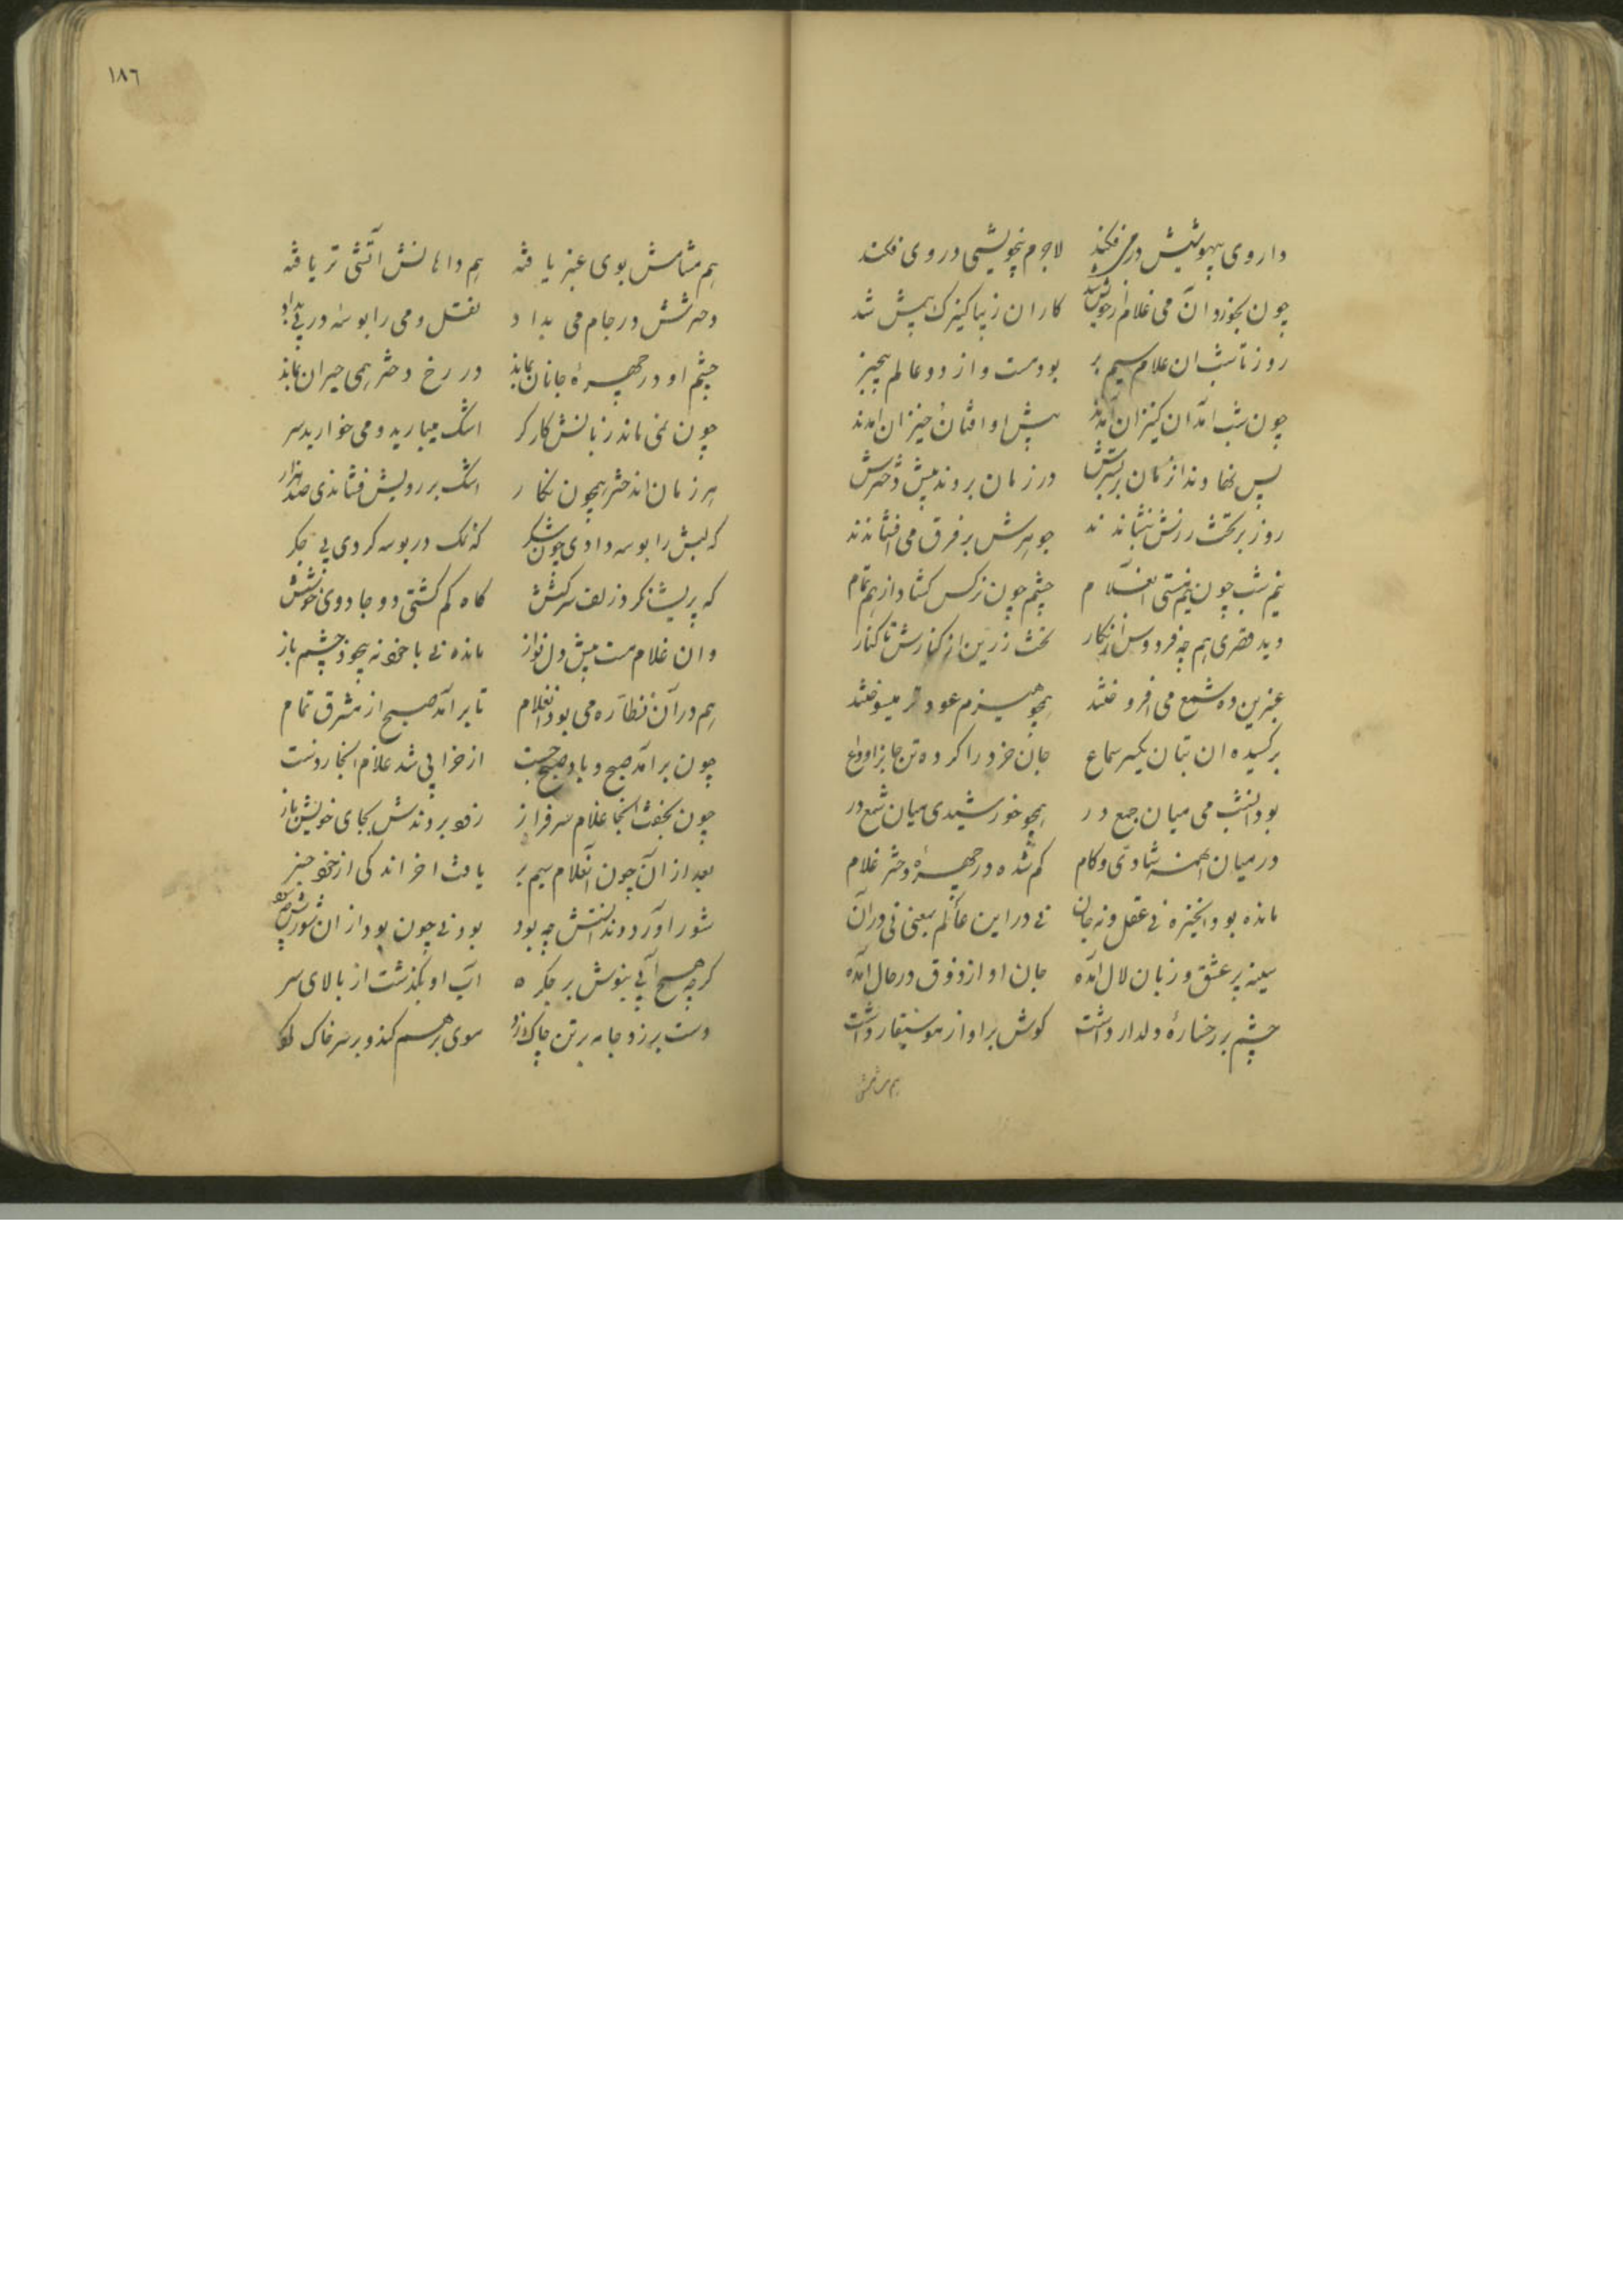 داروی بیهوشیش در می فکند لاجرم بیخویشی در وی فکند
چون بخورد آن می غلام از خویش شد کار آن زیبا کنیزک پیش شد
روز تا شب ان غلام سیم بر بود مست و از دو عالم بیخبر
چون شب امد آن کنیزان آمدند پیش او افتان خیزان امدند
پس نهادند از زمان بر بسترش در زمان بردند پیش دخترش
روز بر تخت زرش بنشاندند جوهرش بر فرق می افشاندند
نیم شب چون نیم مستی آن غلام چشم چون نرکس کشاد از هم تمام
دید قصری هم چو فردوس از نکار تخت زرین از کنارش تا کنار
عنبرین ده شمع می افروختند همچو هیزم عود تر میسوختند
برکشیده ان بتان یکسر سماع جان خرد را کرده تن جانرا وداع
بود انشب می میان جمع در همچو خورشیدی میان شمع در
در میان انهمه شادی و کام کم شده در چهرهٔ دختر غلام
مانده بود او خیره نی عقل و نه جان نی در این عالم بمعنی نی در آن
سینه پر عشق و زبان لال آمده جان او از ذوق در حال آمده
چشم بر رخسارهٔ دلدار داشت کوش بر اواز موسیقار داشت
هم مشامش
١٨٦
هم مشامش بوی عنبر یافته هم دهانش آتشی تر یافته
دخترش در جام می بداد نقل و می را بوسه در پی بداد
چشم او در چهرهٔ جانان بماند در رخ دختر همی حیران بماند
چون نمی ماند زبانش کارکر اشک میبارید و می خوارید سر
هر زمان ان دختر همچون نکار اشک بر رویش فشاندی صد هزار
که لبش را بوسه دادی چون شکر که نمک در بوسه کردی بی جکر
که پریشان کرد زلف سرکشش کاه کم کشتی دو جادوی خوشش
وان غلام مست پیش دل نواز مانده نی با خود نه بیخود چشم باز
هم در آن نظاره می بود آن غلام تا بر آمد صبح از مشرق تمام
چون برامد صبح و باد صبح جست از خرابی شد غلام انجا ز دست
چون بخفت انجا غلام سرفراز زود بردندش بجای خویش باز
بعد از آن چون آن غلام سیم بر یافت اخر اندکی از خود خبر
شور اورد و ندانستش چه بود بودنی چون بود از ان شورش چه سود
کرچه هیچ آبی بنودش بر جکر آب او بکذشت از بالای سر
دست بر زد جامه بر تن چاک زد موی بر هم کند و بر سر خاک کرد